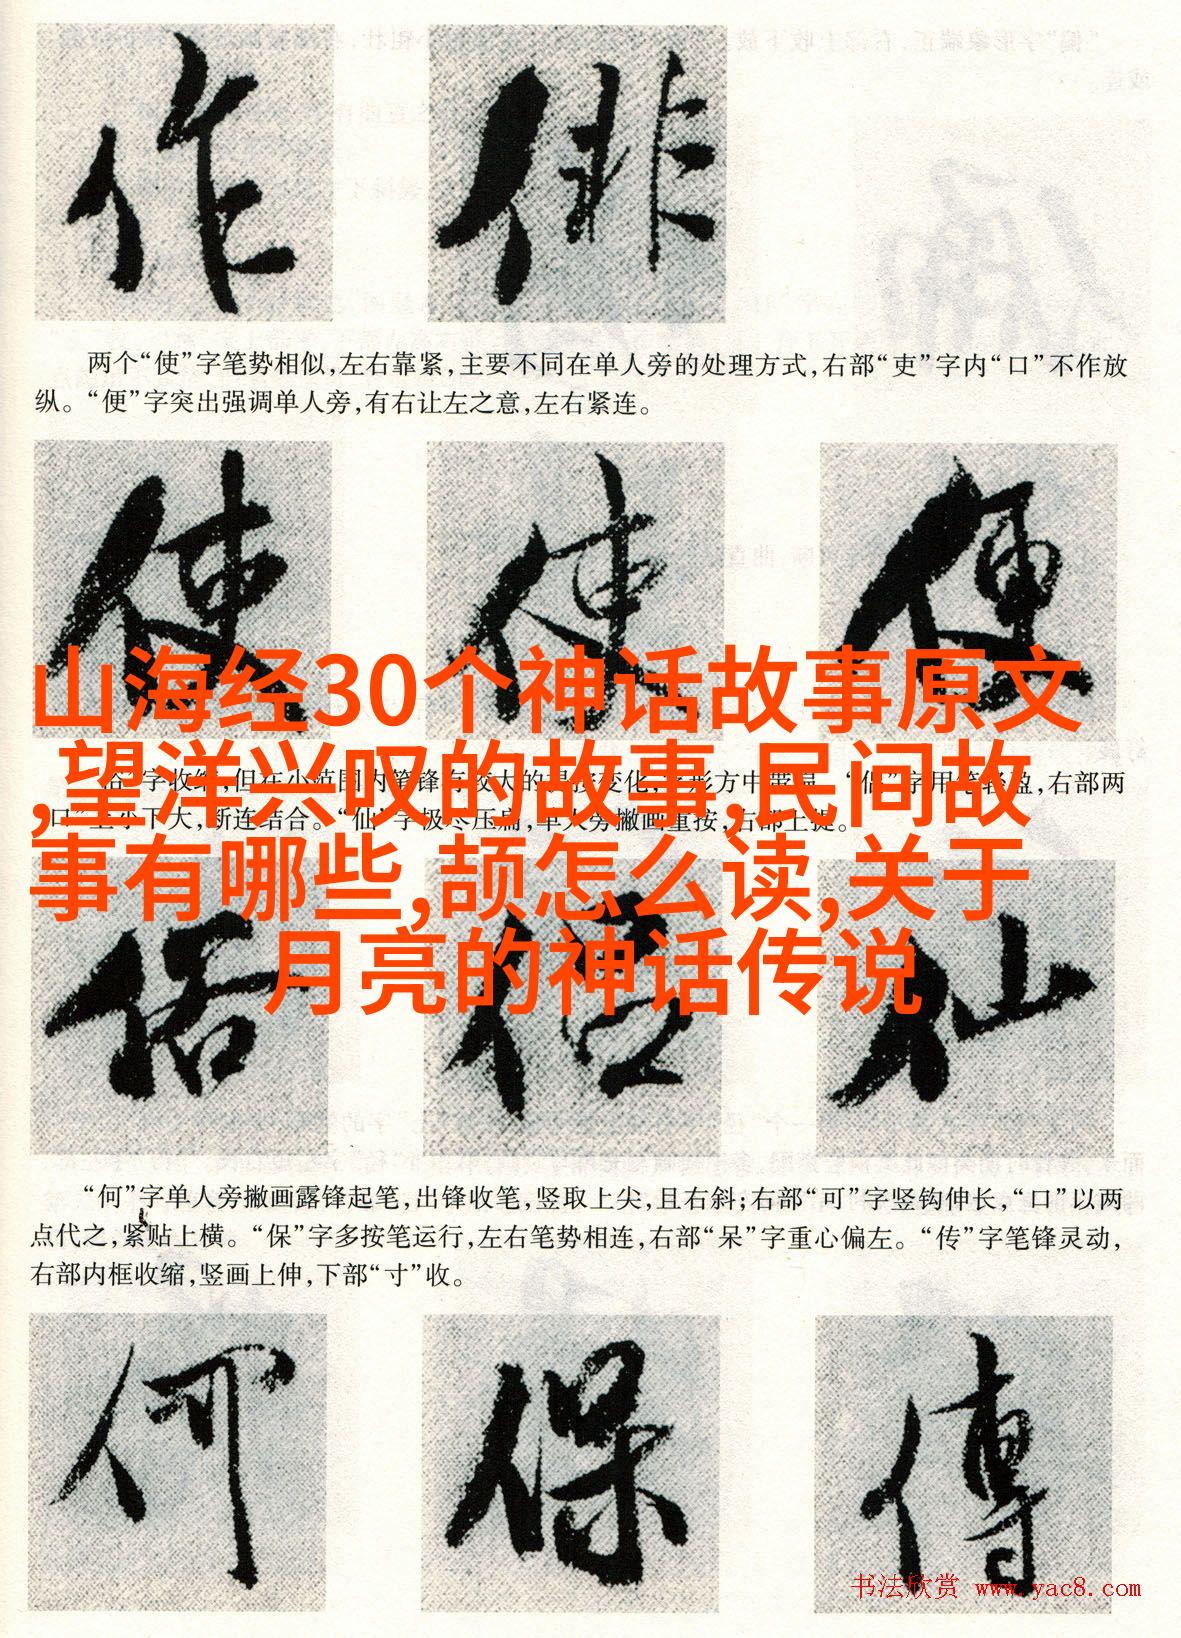 作 俳
两个“使”字笔势相似,左右靠紧,主要不同在单人旁的处理方式,右部“吏”字内“口”不作放
纵。“便”字突出强调单人旁,有右让左之意,左右紧连。
使 使 便
山海经30个神话故事原文
,望洋兴叹的故事,民间故
事有哪些,颉怎么读,关于
月亮的神话传说
字收缩,但在小范围内笔锋有较大的变化,字形方中带扁。“侣”字用笔轻盈,右部两
“口”上小下大,断连结合。“仙”字极尽压扁,单人旁撇画重按,右部上提。
俗 侣 仙
“何”字单人旁撇画露锋起笔,出锋收笔,竖取上尖,且右斜;右部“可”字竖钩伸长,“口”以两
点代之,紧贴上横。“保”字多按笔运行,左右笔势相连,右部“呆”字重心偏左。“传”字笔锋灵动,
右部内框收缩,竖画上伸,下部“寸”收。
何 保 傳
书法欣赏 www.yac8.com